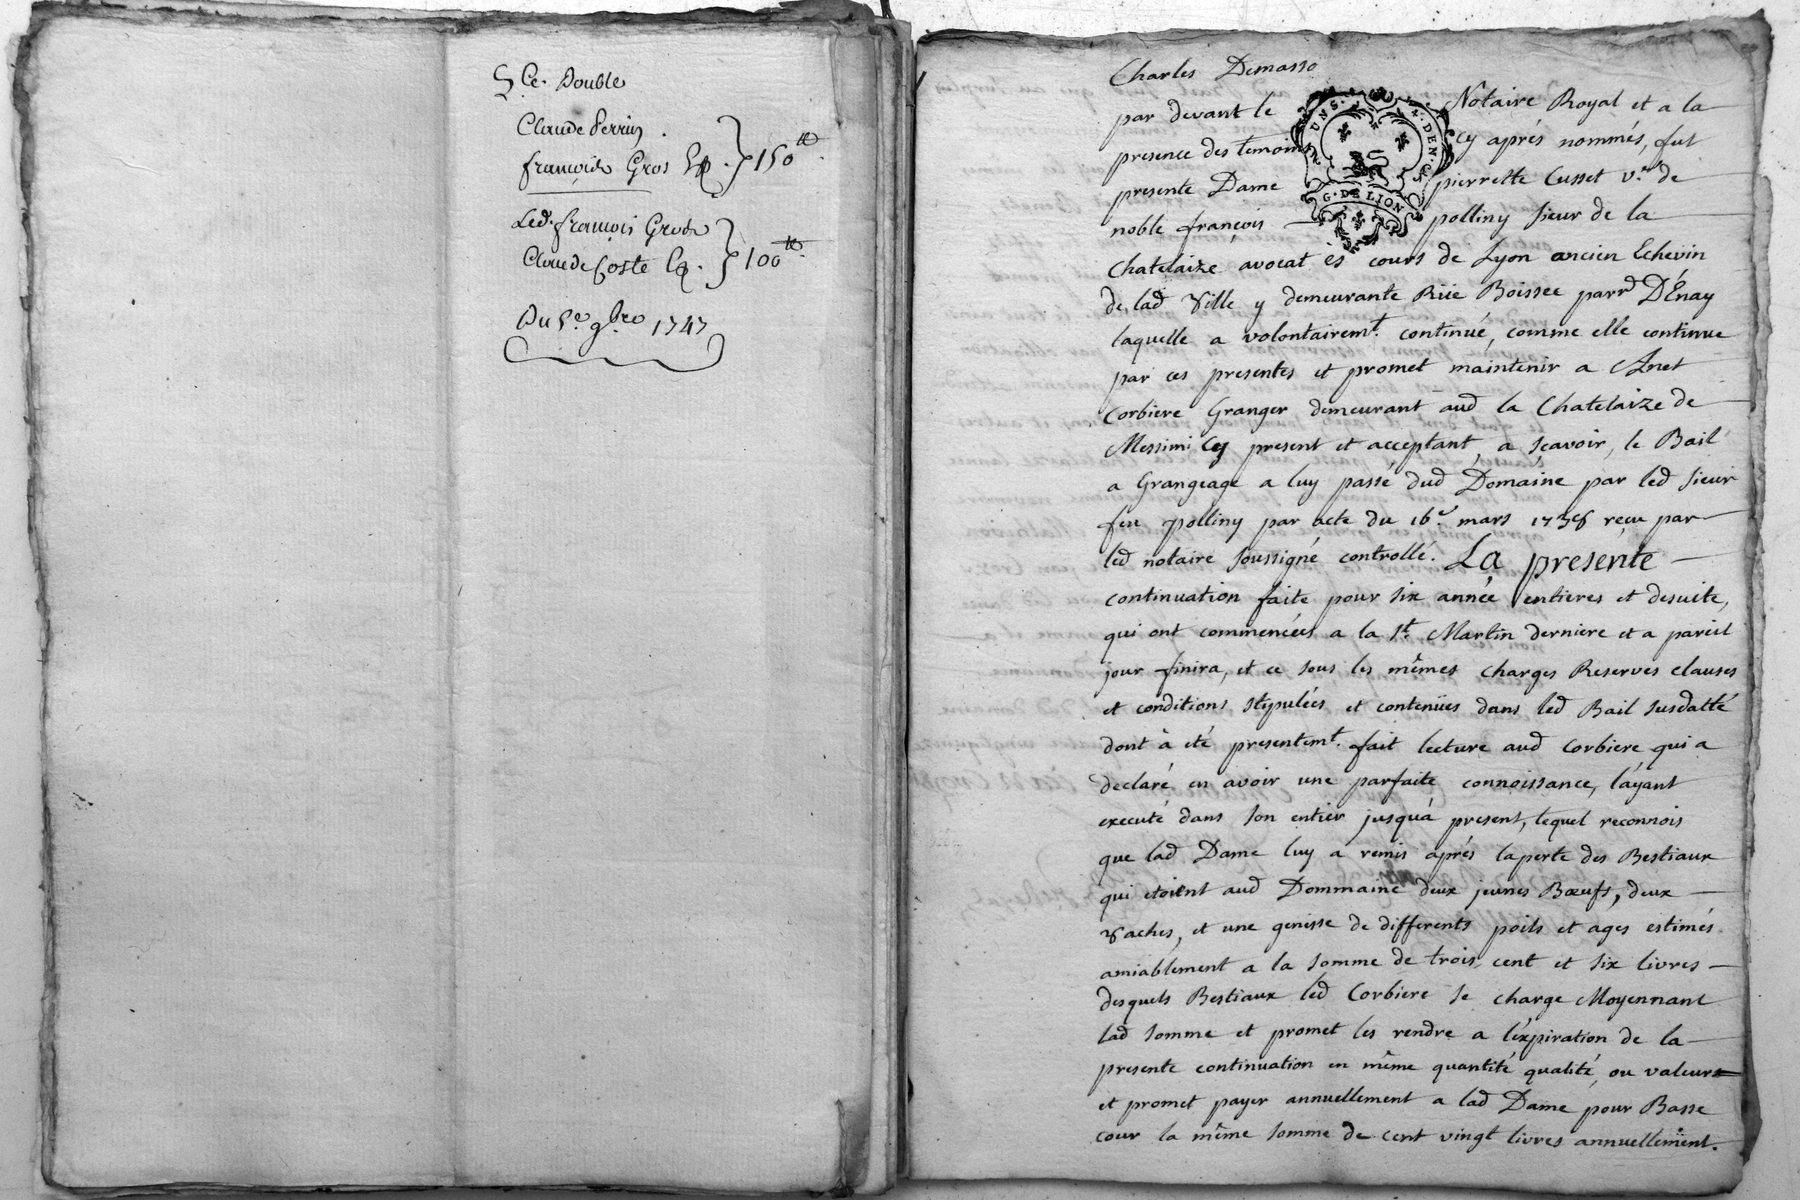 Ce. Double
Claude Perrin
françois Gros
150 tt
Led. françois Gros
Claude Coste
100 tt
Du 5e 9bre 1747
Charles Demasso
par devant le Notaire Royal et a la
presence des temoins cy aprés nommés, fut
presente Dame pierrette Cusset v.e de
noble françois polliny sieur de la
UNS. 4. DEN. G. DE LION
Chatelaize avocat ès cours de Lyon ancien Echevin
de lad ville y demeurante Rüe Boissee parr. D'Enay
laquelle a volontairemt. continué, comme elle continue
par ces presentes et promet maintenir a Anet
Corbiere Granger demeurant aud la Chatelaize de
Messimi Cy present et acceptant, a sçavoir, le Bail
a Grangeage a luy passé dud Domaine par led sieur
feu polliny par acte du 16.e mars reçu par
led notaire soussigné controllé. La presente
continuation faite pour six année entieres et desuite,
qui ont commencées a la St. Martin derniere et a pareil
jour finira, et ce sous les mêmes charges Reserves clauses
et conditions stipulées et contenües dans led Bail susdatté
dont à eté presentemt. fait lecture aud Corbiere qui a
declaré en avoir une parfaite connoissance, l'ayant
executé dans son entier jusqu'a present, lequel reconnois
que lad Dame luy a remis aprés la perte des Bestiaux
qui etoient aud Dommaine deux jeunes Bœufs, deux
vaches, et une genisse de differents poils et ages estimés
amiablement a la somme de trois cent et six livres
desquels Bestiaux led Corbiere se charge Moyennant
lad somme et promet les rendre a l'expiration de la
presente continuation en même quantité qualité, ou valeur
et promet payer annuellement a lad Dame pour Basse
cour la même somme de cent vingt livres annuellement.